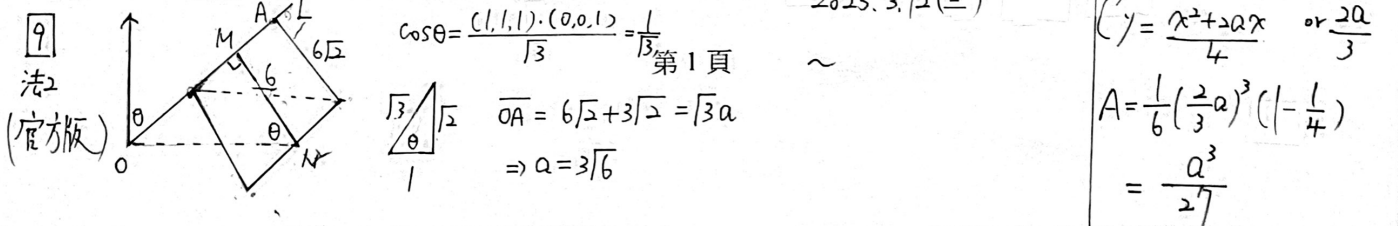 9
法2
(官方版)
A
L
M
6√2
6
θ
θ
O
N
cosθ = (1,1,1)·(0,0,1) / √3 = 1/√3
√3
√2
θ
1
OA = 6√2 + 3√2 = √3 a
⇒ a = 3√6
第 1 頁
~
y = (x²+2ax)/4 or 2a/3
A = 1/6 (2/3 a)³ (1 - 1/4)
= a³/27